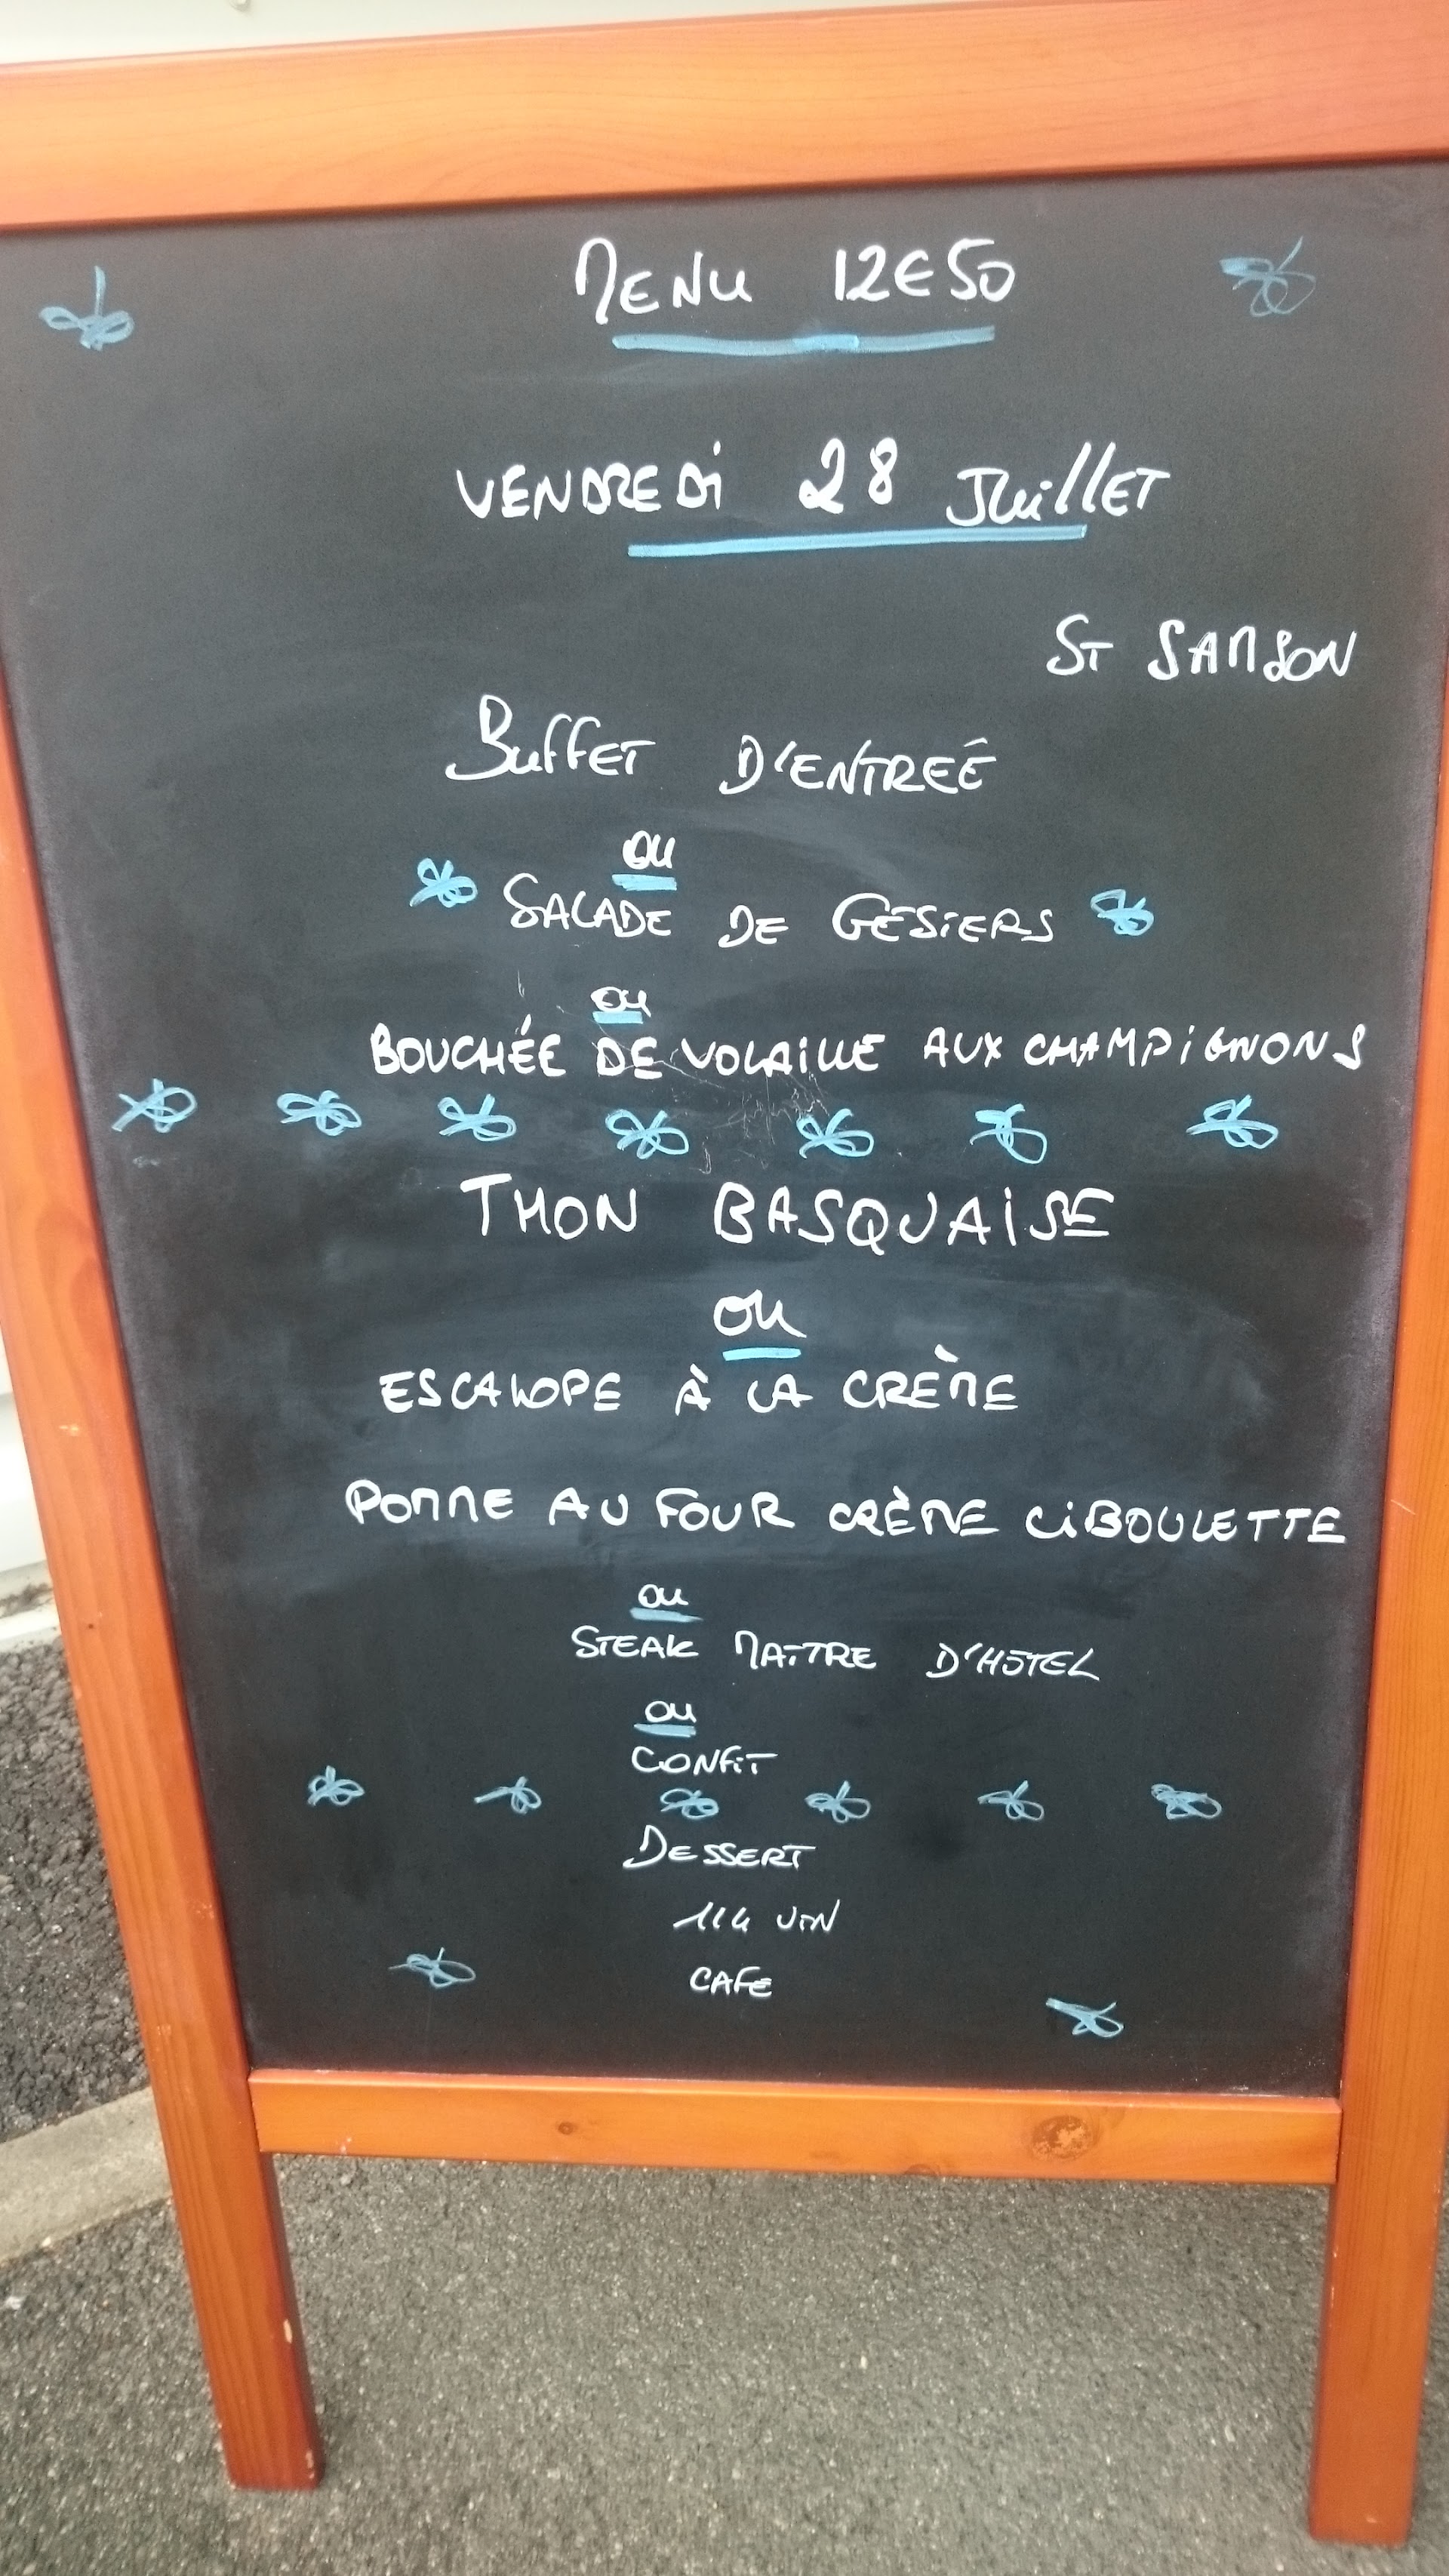 MENU 12€50
VENDREDI 28 JUILLET
ST SAMSON
BUFFET D'ENTREÉ
OU
SALADE DE GÉSIERS
OU
BOUCHÉE DE VOLAILLE AUX CHAMPIGNONS
THON BASQUAISE
OU
ESCALOPE À LA CRÈME
POMME AU FOUR CRÈME CIBOULETTE
OU
STEAK MAITRE D'HOTEL
OU
CONFIT
DESSERT
1/4 VIN
CAFE